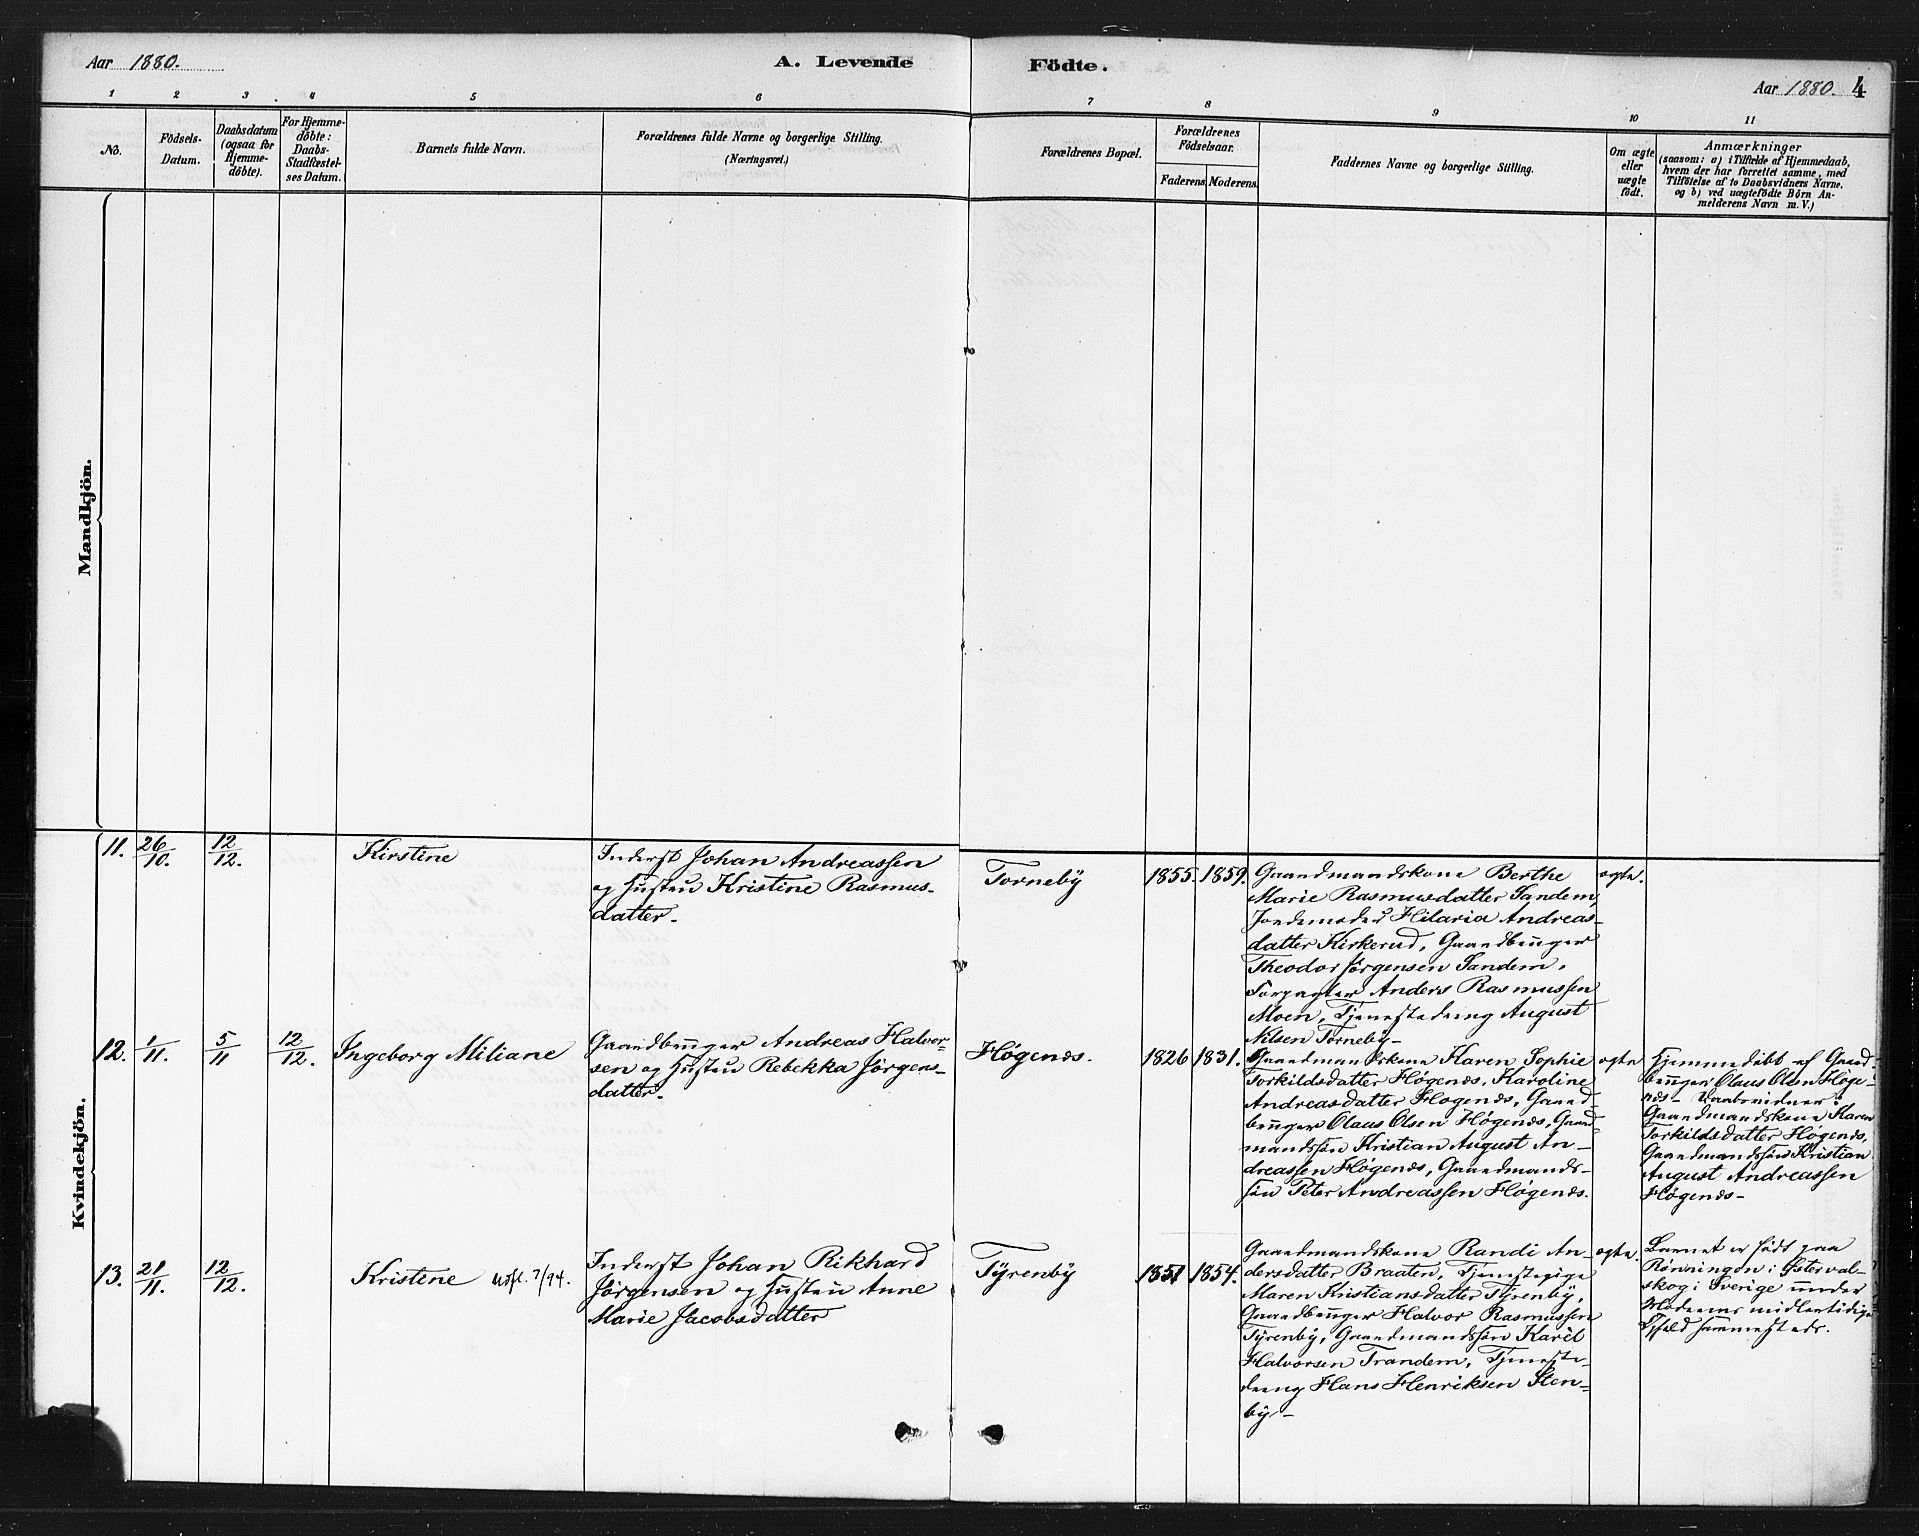 Aar 1880.
A. Levende Födte.
Aar 1880. 4
1 2 3 4 5 6 7 8 9 10 11
No.
Födsels-
Datum.
Daabsdatum
(ogsaa for
Hjemme-
döbte).
For Hjemme-
döbte:
Daabs-
Stadfæstel-
ses Datum.
Barnets fulde Navn.
Forældrenes fulde Navne og borgerlige Stilling.
(Næringsvei.)
Forældrenes Bopæl.
Forældrenes
Födselsaar.
Faderens. Moderens.
Faddernes Navne og borgerlige Stilling.
Om ægte
eller
uægte
födt.
Anmærkninger
(saasom: a) i Tilfælde af Hjemmedaab,
hvem der har forrettet samme, med
Tilföielse af to Daabsvidners Navne,
og b) ved uægtefödte Börn An-
melderens Navn m. V.)
Mandkjön.
Kvindekjön.
11. 26/10. 12/12. Kirstine
Inderst Johan Andreassen
og Hustru Kristine Rasmus-
datter.
Torneby 1855. 1859.
Gaardmandskone Berthe
Marie Rasmusdatter Sandem,
Jordemoder Hilaria Andreas-
datter Kirkerud, Gaardbruger
Theodor Jørgensen Sandem,
Forpagter Anders Rasmussen
Moen, Tjenestedreng August
Nilsen Torneby-
ægte.
12. 1/11. 5/11 12/12. Ingeborg Miliane
Gaardbruger Andreas Halvor-
sen og Hustru Rebekka Jørgens-
datter.
Høgenæs. 1826 1831.
Gaardmandskone Karen Sophie
Torkildsdatter Høgenæs, Karoline
Andreasdatter Høgenæs, Gaard-
bruger Olaus Olsen Høgenæs, Gaard-
mandssøn Kristian August An-
dreassen Høgenæs, Gaardmands-
søn Peter Andreassen Høgenæs.
ægte
Hjemmedøbt af Gaard-
bruger Olaus Olsen Høge-
næs- Daabsvidner:
Gaardmandskone Karen
Torkildsdatter Høgenæs,
Gaardmandssøn Kristian
August Andreassen
Høgenæs-
13. 21/11. 12/12. Kristine Udfl. 7/94.
Inderst Johan Rikhard
Jørgensen og Hustru Anne
Marie Jacobsdatter
Tyrenby 1851 1854.
Gaardmandskone Randi An-
dersdatter Braaten, Tjenestepige
Maren Kristiansdatter Tyrenby,
Gaardbruger Halvor Rasmussen
Tyrenby, Gaardmandssøn Karel
Halvorsen Trandem, Tjeneste-
dreng Hans Henriksen Sten-
by-
ægte.
Barnet er født paa
Rønningen i Østerval-
skog i Sverige under
Moderens midlertidige
Ophold sammesteds.